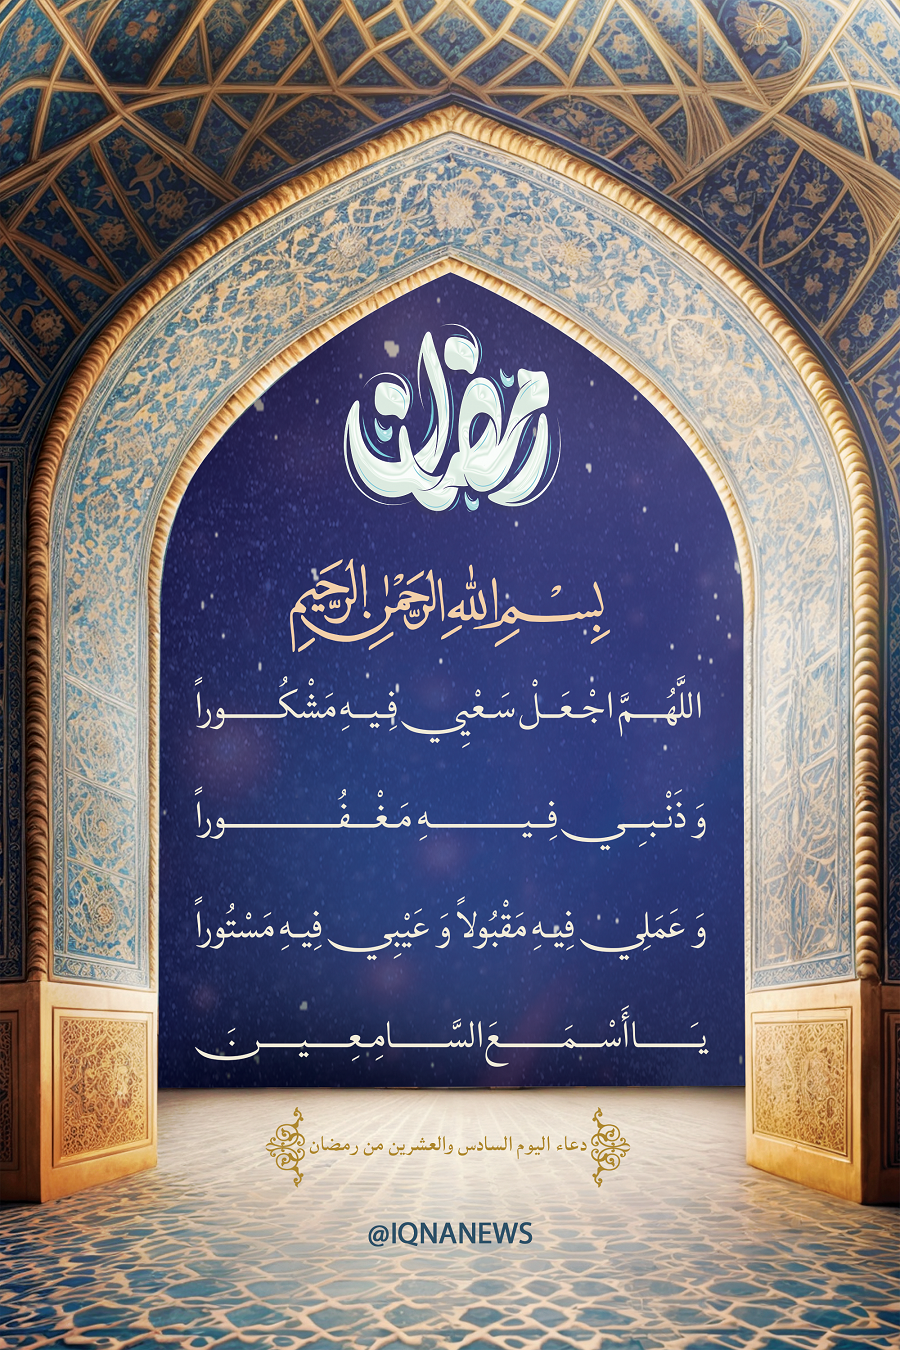 رمضان
بِسْمِ اللهِ الرَّحْمٰنِ الرَّحِيمِ
اللَّهُمَّ اجْعَلْ سَعْيِي فِيهِ مَشْكُوراً
وَ ذَنْبِي فِيهِ مَغْفُوراً
وَ عَمَلِي فِيهِ مَقْبُولاً وَ عَيْبِي فِيهِ مَسْتُوراً
يَا أَسْمَعَ السَّامِعِينَ
دعاء اليوم السادس والعشرين من رمضان
@IQNANEWS